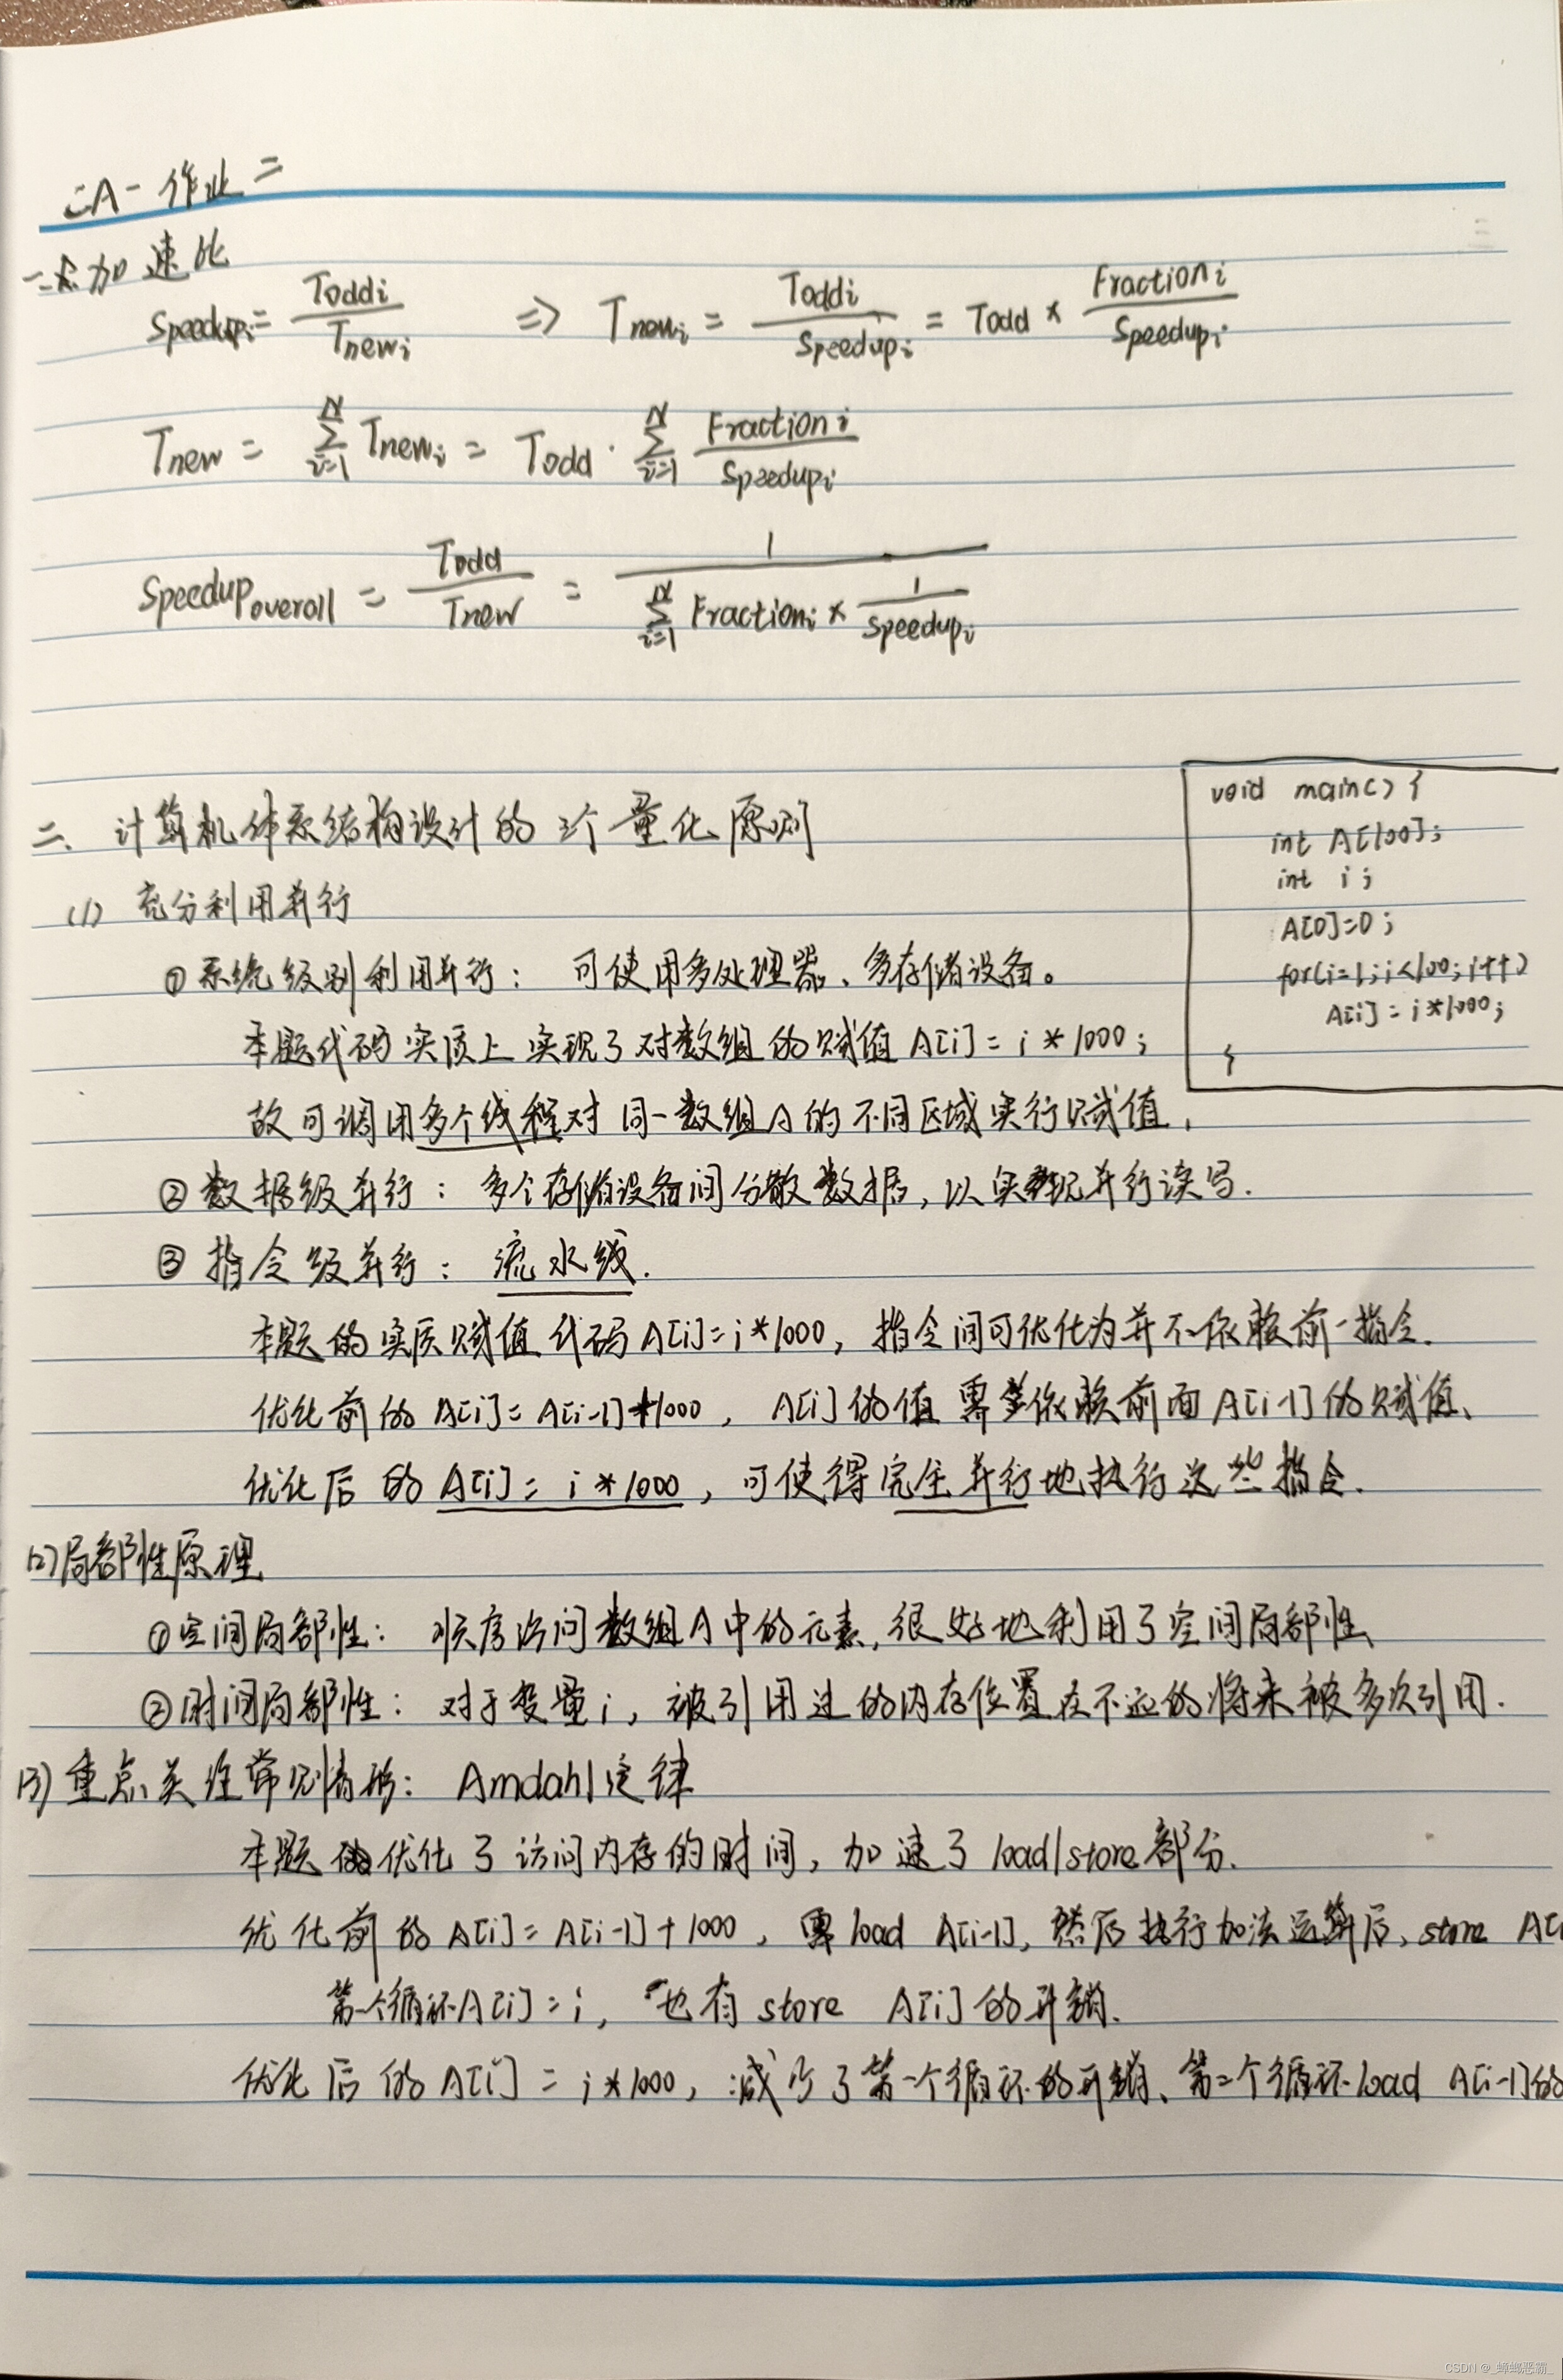 CA-作业二
一.求加速比
Speedupi = Toddi / Tnewi ⇒ Tnewi = Toddi / Speedupi = Todd × Fractioni / Speedupi
Tnew = ∑(i=1, N) Tnewi = Todd · ∑(i=1, N) Fractioni / Speedupi
Speedup overall = Todd / Tnew = 1 / (∑(i=1, N) Fractioni × 1 / Speedupi)
二、计算机体系结构设计的3个量化原则
void main() {
int A[100];
int i;
A[0]=0;
for(i=1;i<100;i++)
A[i] = i*1000;
}
(1) 充分利用并行
①系统级别利用并行: 可使用多处理器、多存储设备。
本题代码实质上实现了对数组的赋值A[i] = i * 1000;
故可调用多个线程对同一数组A的不同区域实行赋值.
②数据级并行: 多个存储设备间分散数据,以实现并行读写.
③ 指令级并行: 流水线.
本题的实质赋值代码A[i]=i*1000, 指令间可优化为并不依赖前一指令.
优化前的 A[i]= A[i-1]+1000, A[i]的值需要依赖前面A[i-1]的赋值、
优化后的 A[i] = i * 1000, 可使得完全并行地执行这些指令.
(2)局部性原理
①空间局部性: 顺序访问数组A中的元素,很好地利用了空间局部性
②时间局部性: 对于变量i, 被引用过的内存位置在不远的将来被多次引用.
(3)重点关注常见情形: Amdahl定律
本题 优化了访问内存的时间, 加速了load/store部分.
优化前的A[i]= A[i-1]+1000, 需load A[i-1], 然后执行加法运算后, store A[i
第一个循环A[i] = i, 也有store A[i]的开销.
优化后的A[i] = i*1000, 减少了第一个循环的开销、第二个循环load A[i-1]的
CSDN @_蟑螂恶霸